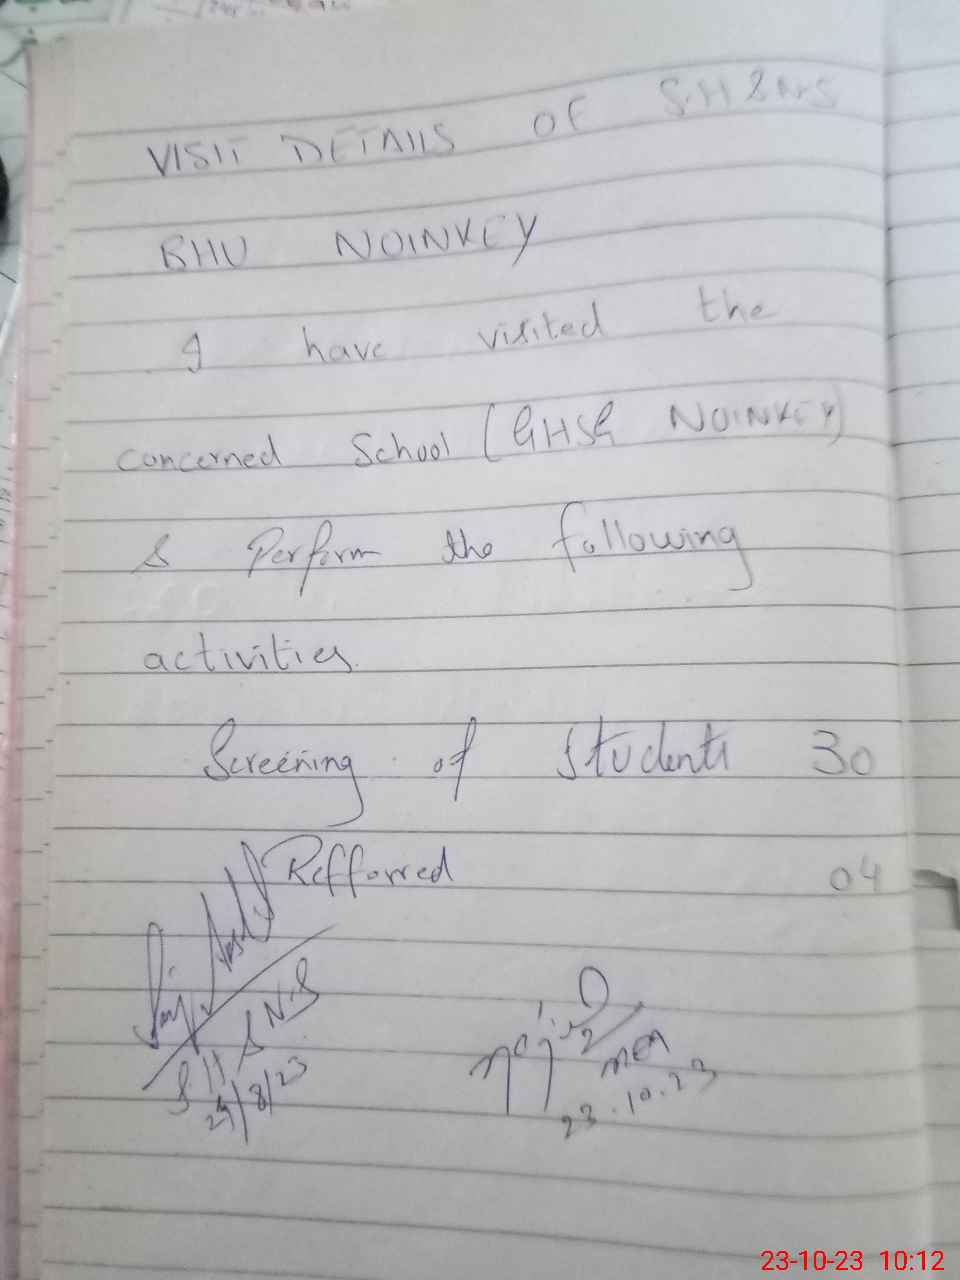 VISIT DETAIlS OF S.H&NS
BHU NOINKEY
I have visited the
concerned School (GHSG NOINKEY)
& Perform the following
activities.
Screening of students 30
Refforred 04
S H & N.S
29/8/23
MEA
23.10.23
23-10-23 10:12